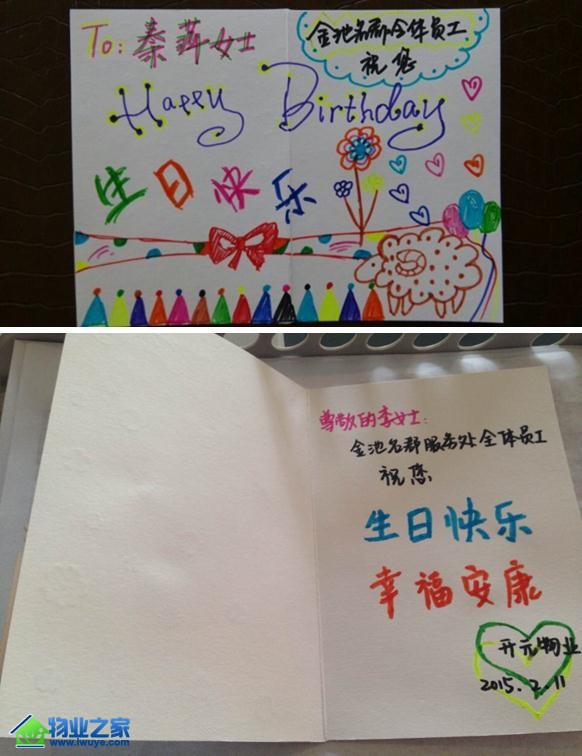 To: 秦萍女士
金池名郡全体员工
祝您
Happy Birthday
生日快乐
尊敬的李女士:
金池名郡服务处全体员工
祝您
生日快乐
幸福安康
开元物业
2015.2.11
物业之家
www.lwuye.com